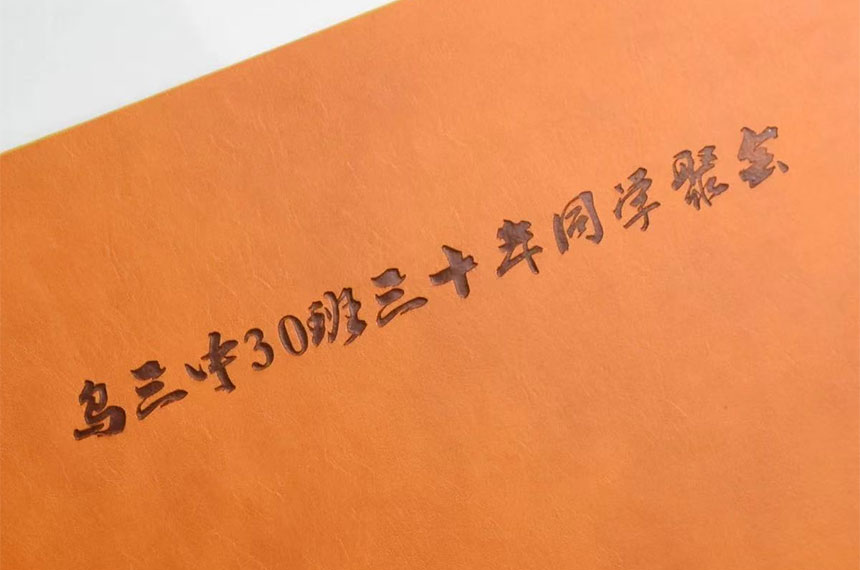 乌三中30班三十年同学聚会